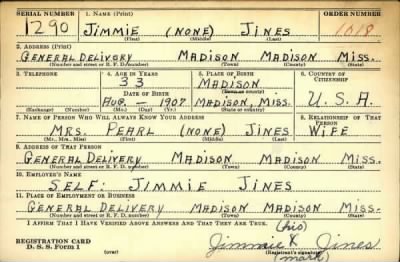 SERIAL NUMBER 1. NAME (Print) ORDER NUMBER
1290 JIMMIE (NONE) JINES 1018
(First) (Middle) (Last)
2. ADDRESS (Print)
GENERAL DELIVORY MADISON MADISON MISS.
(Number and street or R. F. D. number) (Town) (County) (State)
3. TELEPHONE 4. AGE IN YEARS 5. PLACE OF BIRTH 6. COUNTRY OF CITIZENSHIP
33 MADISON
DATE OF BIRTH (Town or county)
AUG. — 1907 MADISON, MISS. U.S.A.
(Exchange) (Number) (Mo.) (Day) (Yr.) (State or country)
7. NAME OF PERSON WHO WILL ALWAYS KNOW YOUR ADDRESS 8. RELATIONSHIP OF THAT PERSON
MRS. PEARL (NONE) JINES WIFE
(Mr., Mrs., Miss) (First) (Middle) (Last)
9. ADDRESS OF THAT PERSON
GENERAL DELIVERY MADISON MADISON MISS.
(Number and street or R. F. D. number) (Town) (County) (State)
10. EMPLOYER'S NAME
SELF: JIMMIE JINES
11. PLACE OF EMPLOYMENT OR BUSINESS
GENERAL DELIVERY MADISON MADISON MISS.
(Number and street or R. F. D. number) (Town) (County) (State)
I AFFIRM THAT I HAVE VERIFIED ABOVE ANSWERS AND THAT THEY ARE TRUE.
(his)
REGISTRATION CARD Jimmie X Jines
D. S. S. Form 1 (over) (Registrant's signature)
(mark)